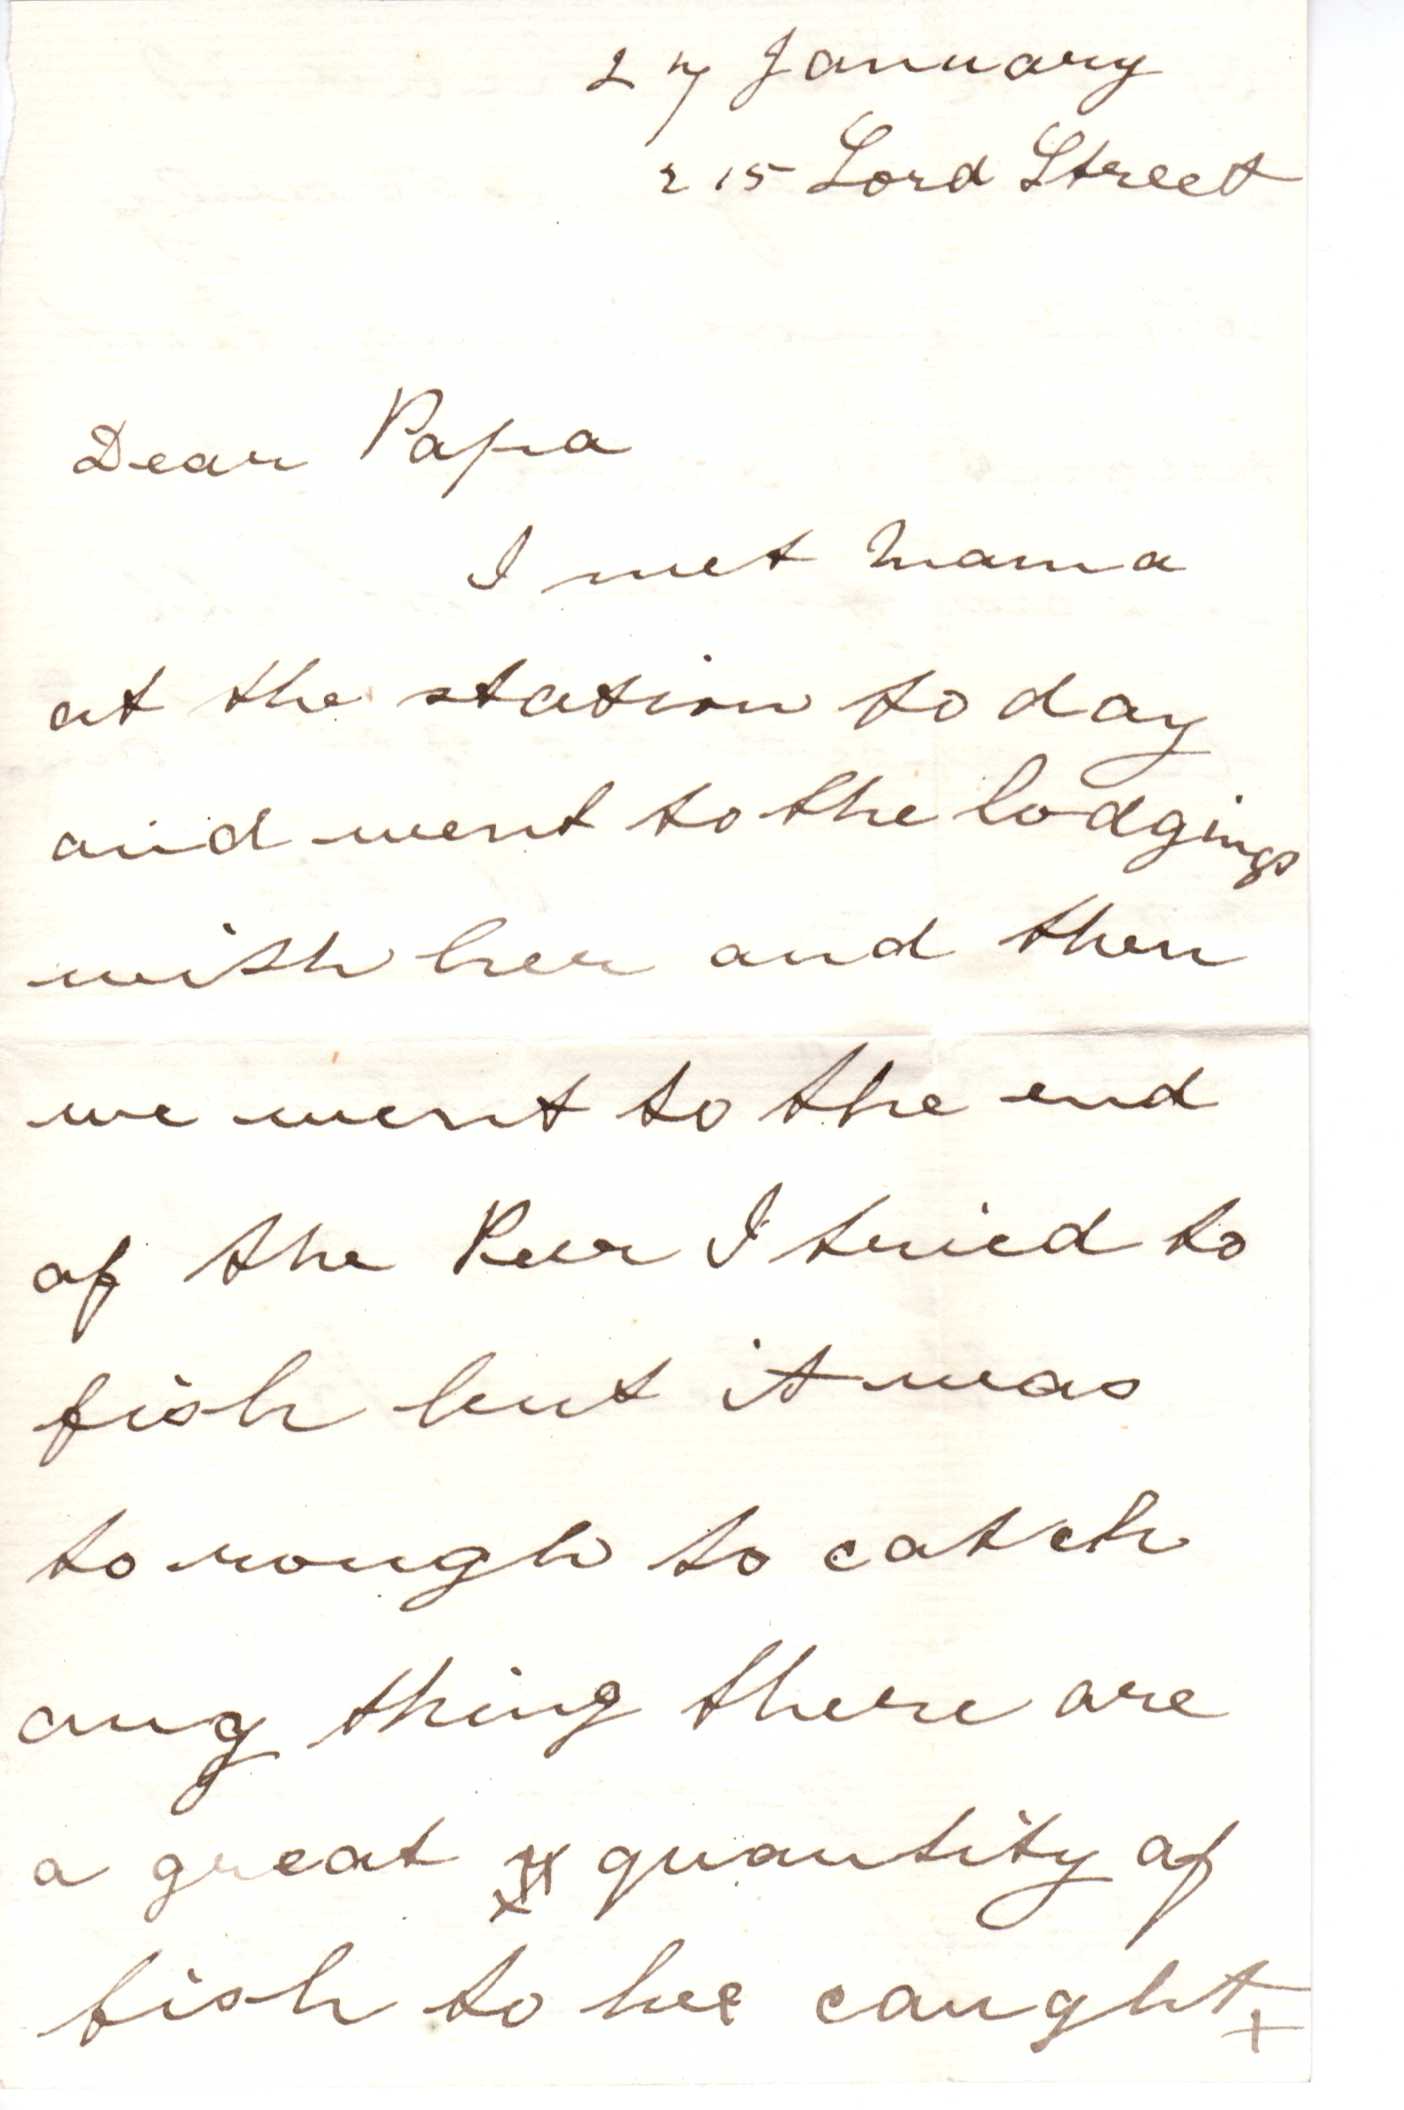 27 January
215 Lord Street
Dear Papa
I met Mama
at the station to day
and went to the lodgings
with her and then
we went to the end
of the Peer I tried to
fish but it was
to rough to catch
any thing there are
a great quantity of
fish to be caught